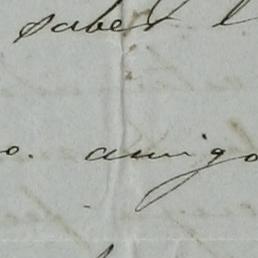 saber l
o. amigo